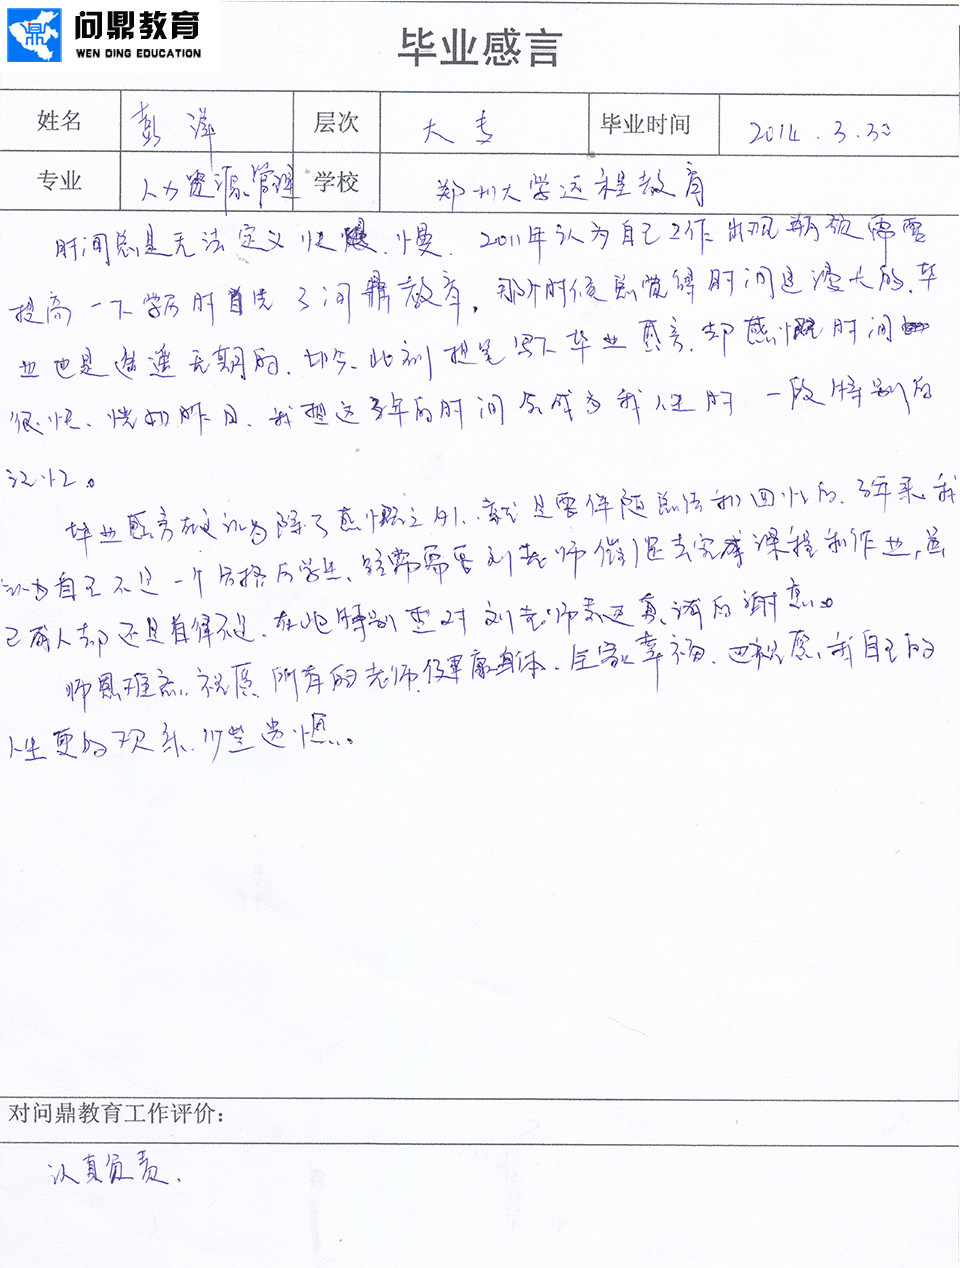 问鼎教育
WEN DING EDUCATION
毕业感言
姓名 彭萍 层次 大专 毕业时间 2014.3.30
专业 人力资源管理 学校 郑州大学远程教育
时间总是无法定义快慢.慢. 2011年认为自己工作出现瓶颈需要
提高一下学历时首选了问鼎教育,那个时候总觉得时间是漫长的.毕
业也是遥遥无期的.如今.此刻提笔写下毕业感言.却感慨时间
很快、恍如昨日.我想这3年的时间会成为我人生的一段特别的
记忆。
毕业感言在我认为除了感慨之外.就是要伴随总结和回忆的.3年来我
认为自己不是一个合格的学生、经常需要刘老师催促去完成课程和作业,
已成人却还是自律不足.在此特别要对刘老师表达真诚的谢意。
师恩难忘.祝愿所有的老师健康身体.全家幸福.也祝愿我自己的
人生更加欢乐.少些遗憾。
对问鼎教育工作评价:
认真负责.